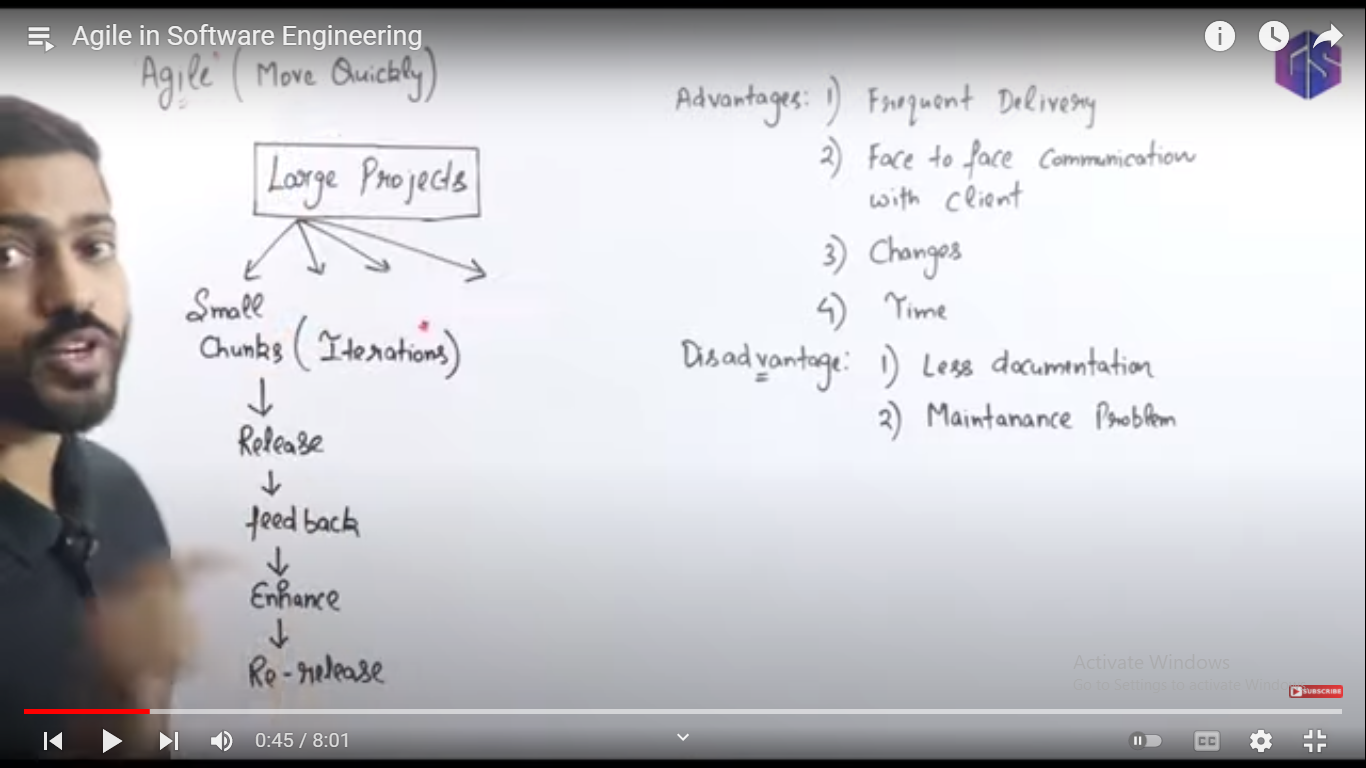 Agile in Software Engineering
Agile (Move Quickly)
Large Projects
Small
Chunks (Iterations)
Release
feedback
Enhance
Re-release
Advantages: 1) Frequent Delivery
2) Face to face communication
with client
3) Changes
4) Time
Disadvantage: 1) Less documentation
2) Maintanance Problem
Activate Windows
Go to Settings to activate Windows
SUBSCRIBE
0:45 / 8:01
CC